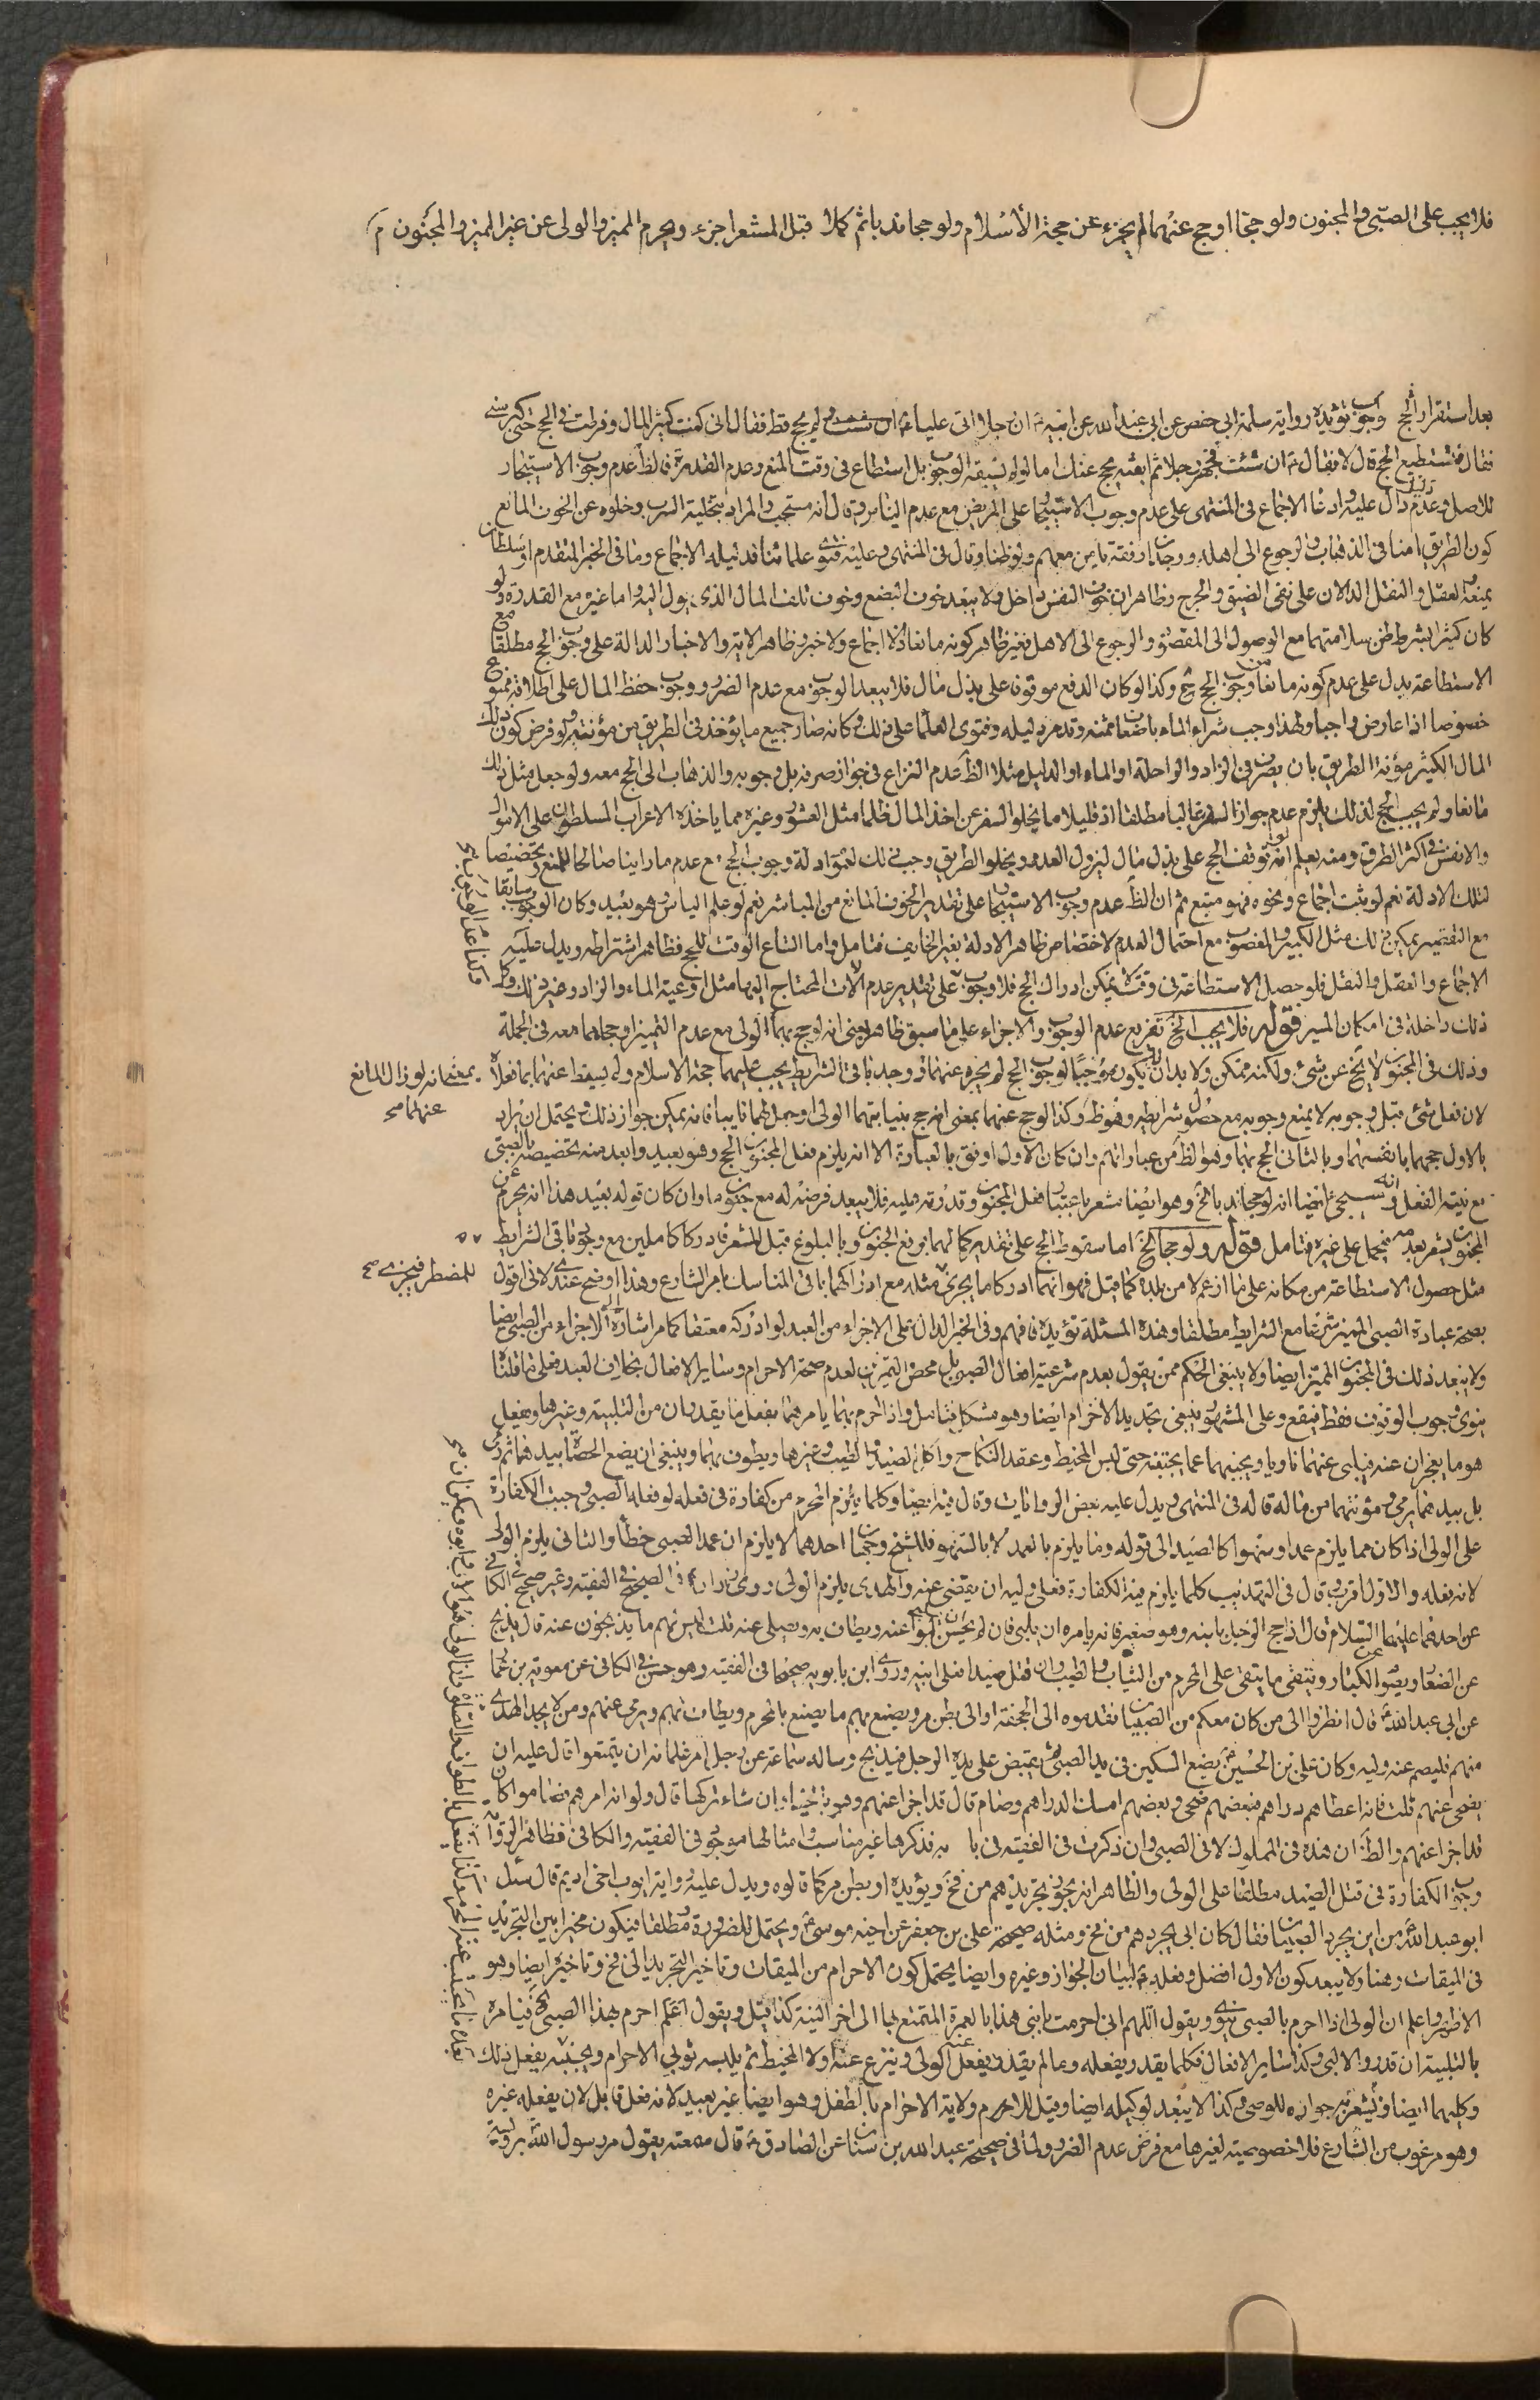 فلا يجب على الصبي والمجنون ولو حجّا او حج عنهما لم يجزء عن حجة الأسلام ولو حجا ندبا ثم كملا قبل المشعر اجزء ويحرم المميز والولى عن غير المميز والمجنون م
بعد استقرار الحج وجوب تؤيده رواية سلمة ابى حفص عن ابى عبد الله عن ابيه ان رجلا اتى عليا ولم يحج قط فقال انى كنت كثير المال وفرطت فى الحج حتى كبر سنى
فقال فتستطيع الحج قال لا فقال ان شئت فجهز رجلا ثم ابعثه يحج عنك اما لو لم يسبقه الوجوب بل استطاع فى وقت المنع وعدم القدرة فالظ عدم وجوب الاستيجار
للاصل وعدم دال عليه وادعا الاجماع فى المنتهى على عدم وجوب الاستيجار على المريض مع عدم الياس وقال انه مستحب والمراد بتخلية السرب وخلوه عن الخوف المانع
كون الطريق امنا فى الذهاب والرجوع الى اهله ورجا رفقة يامن معهم ولو ظنا وقال فى المنتهى وعليه فتوى علمائنا فدليله الاجماع وما فى الخبر المتقدم او سلطان
يمنعه العقل والنقل الدالان على نفى الضيق والحرج وظاهر ان خوف النفس داخل ولا يبعد خوف البضع وخوف تلف المال الذى يول اليه واما غيره مع القدرة ولو
كان كثيرا بشرط ظن سلامتهما مع الوصول الى المقصد والرجوع الى الاهل فغير ظاهر كونه مانعا اذ لا اجماع ولا خبر وظاهر الاية والاخبار الدالة على وجوب الحج مطلقا مع
الاستطاعة يدل على عدم كونه مانعا من وجوب الحج وكذا لو كان الدفع موقوفا على بذل مال فلا يبعد الوجوب مع عدم الضرر ووجوب حفظ المال على اطلاقه ممنوع
خصوصا اذا عارض واجبا ولهذا وجب شراء الماء باضعاف ثمنه وقد مر دليله وفتوى العلماء على ذلك وكانه صار جميع ما يؤخذ فى الطريق من مؤنته ولو فرض كون ذلك
المال الكثير مؤنة الطريق بان يصرف فى الزاد والراحلة او الماء او الدليل مثلا الظ عدم النزاع فى جواز صرفه بل وجوبه والذهاب الى الحج معه ولو جعل مثل ذلك
مانعا ولم يجب الحج لذلك يلزم عدم جواز السفر غالبا مطلقا اذ قليلا ما يخلو السفر عن اخذ المال ظلما مثل العشور وغيره مما ياخذه الاعراب المسلطون على الاموال
والانفس فى اكثر الطرق ومنه يعلم انه لو توقف الحج على بذل مال ليزول العدو ويخلو الطريق وجب ذلك لعموم ادلة وجوب الحج مع عدم ما راينا صالحا للمنع وتخصيصا
لتلك الادلة نعم لو ثبت اجماع ونحوه فهو متبع ثم ان الظ عدم وجوب الاستيجار على تقدير الخوف المانع من المباشر نعم لو علم الياس وهو بعيد وكان الوجوب سابقا
مع التقصير يمكن ذلك مثل الكبير والمعضوب مع احتمال العدم لاختصاص ظاهر الادلة بغير الخايف فتامل واما اتساع الوقت للحج فظاهر اشتراطه ويدل عليه
الاجماع والعقل والنقل فلو حصل الاستطاعة فى وقت لا يمكن ادراك الحج فلا وجوب على تقدير عدم الالات المحتاج اليها مثل اوعية الماء والزاد وغير ذلك وكل
ذلك داخلة فى امكان المسير قوله فلا يجب الخ تفريع عدم الوجوب والاجزاء على ما سبق ظاهر يعنى انه لو حج بهما الولى مع عدم التميز او حجا هما معه فى الجملة
وذلك فى المجنون لا يخ عن شئ ولكنه ممكن ولا بد ان لا يكون موجبا لوجوب الحج لم يجزء عنهما فلو وجد باقى الشرايط يجب عليهما حجة الاسلام ولم يسقط عنهما بما فعلاه
لان فعل شئ قبل وجوبه لا يمنع وجوبه مع حصول شرايطه وهو ظ وكذا لو حج عنهما بمعنى انه حج بنيابتهما الولى او جعل لهما نايبا فانه يمكن جواز ذلك ويحتمل ان يراد
بالاول حجهما بانفسهما وبالثانى الحج بهما وهو الظ من عباراتهم وان كان الاول اوفق بالعبارة الا انه يلزم فعل المجنون الحج وهو بعيد وابعد منه تخصيصه بالصبى
مع نية الفعل وانه سيجئ ايضا انه لو حجا ندبا الخ وهو ايضا مشعر باعتبار فعل المجنون وقدرته عليه فلا يبعد فرضه له مع جنون ما وان كان قوله بعيد هذا انه يحرم عن
المجنون يشعر بعدمه فيحمل على غيره فتامل قوله ولو حجا الخ اما سقوط الحج على تقدير كمالهما برفع الجنون وبالبلوغ قبل المشعر فادركا كاملين مع وجود باقى الشرايط
مثل حصول الاستطاعة من مكانه على ما ازعم لا من بلده كما قيل فهو انهما ادركا ما يجزئ مثله مع ادراكهما باقى المناسك بامر الشارع وهذا اوضح عندى لانى اقول
بصحة عبادة الصبى المميز شرعا مع الشرايط مطلقا وهذه المسئلة تؤيده فافهم وفى الخبر الدال على الاجزاء من العبد لو ادركه معتقا كما مر اشارة الى الاجزاء من الصبى ايضا
ولا يبعد ذلك فى المجنون المميز ايضا ولا ينبغى الحكم ممن يقول بعدم شرعية افعال الصبى بل محض التمرين لعدم صحة الاحرام وساير الافعال بخلاف العبد فعلى ما قلنا
ينوى وجوب الوقوف فقط فيقع وعلى المشهور ينبغى تجديد الاحرام ايضا وهو مشكل فتامل واذا احرم بهما يامرهما بفعل ما يقدران من التلبية وغيرها ويفعل
هو ما يعجزان عنه فيلبى عنهما ناويا ويجنبهما عما يجتنبه حتى لبس المخيط وعقد النكاح واكل الصيد والطيب وغيرها ويطوف بهما وينبغى ان يضع الحصاة بيدهما ثم يرمى
بل بيدهما يرمى ومؤنتهما من ماله قاله فى المنتهى ويدل عليه بعض الروايات وقال فيه ايضا وكلما يلزم المحرم من كفارة فى فعله لو فعله الصبى وجبت الكفارة
على الولى اذا كان مما يلزم عمدا وسهوا كالصيد الى قوله وما يلزم بالعمد لا بالسهو فللشيخ وجهان احدهما لا يلزم ان عمد الصبى خطأ والثانى يلزم الولى
لانه بفعله والاول اقرب وقال فى التهذيب كلما يلزم فيه الكفارة فعلى وليه ان يقضى عنه والهدى يلزم الولى روى زرارة فى الصحيح فى الفقيه وغير صحيح فى الكافى
عن احدهما عليهما السلام قال اذا حج الرجل بابنه وهو صغير فانه يامره ان يلبى فان لم يحسن لبوا عنه ويطاف به ويصلى عنه قلت ليس لهم ما يذبحون عنه قال يذبح
عن الصغار ويصوم الكبار ويتقى ما يتقى على المحرم من الثياب والطيب وان قتل صيدا فعلى ابيه وروى ابن بابويه صحيحا فى الفقيه وهو حسن فى الكافى عن معوية بن عمار
عن ابى عبد الله قال انظروا الى من كان معكم من الصبيان فقدموه الى الجحفة او الى بطن مر ويصنع بهم ما يصنع بالمحرم ويطاف بهم ويرمى عنهم ومن لا يجد الهدى
منهم فليصم عنه وليه وكان على بن الحسين يضع السكين فى يد الصبى ثم يقبض على يديه الرجل فيذبح وساله سماعة عن رجل امر غلمانه ان يتمتعوا قال عليه ان
يضحى عنهم قلت فانه اعطاهم دراهم فبعضهم ضحى وبعضهم امسك الدراهم وصام قال قد اجزا عنهم وهو بالخيار ان شاء تركها قال ولو انه امرهم فصاموا كان
قد اجزا عنهم والظ ان هذه فى المملوك لا فى الصبى وان ذكرت فى الفقيه فى با به فذكرها غير مناسب وامثالها موجود فى الفقيه والكافى فظاهر الرواية
وجوب الكفارة فى قتل الصيد مطلقا على الولى والظاهر انه يجوز تجريدهم من فخ ويؤيده او بطن مر كما قالوه ويدل عليه رواية ايوب اخى اديم قال سئل
ابو عبد الله من اين يجرد الصبيان فقال كان ابى يجردهم من فخ ومثله صحيحة على بن جعفر عن اخيه موسى ويحتمل للضرورة ومطلقا فيكون مخيرا بين التجريد
فى الميقات وهنا ولا يبعد كون الاول افضل وفعله لبيان الجواز وغيره وايضا يحتمل كون الاحرام من الميقات وتاخير التجريد الى فخ وتاخيره ايضا وهو
الاظهر واعلم ان الولى اذا احرم بالصبى ينوى ويقول اللهم انى احرمت بابنى هذا بالعمرة المتمتع بها الى اخر النية كذا قيل ويقول احرم بهذا الصبى فيامره
بالتلبية ان قدر والا لبى وكذا ساير الافعال فكلما يقدر يفعله وما لم يقدر يفعل عنه الولى وينزع عنه اولا المخيط ثم يلبسه ثوبى الاحرام ويجنبه يفعل ذلك
وكليهما ايضا ويشعر به جوازه للوصى وكذا لا يبعد لوكيله ايضا وقيل للام ولاية الاحرام بالطفل وهو ايضا غير بعيد لانه فعل قابل لان يفعله غيره
وهو مرغوب من الشارع فلا خصوصية لغيرها مع فرض عدم الضرر ولما فى صحيحة عبد الله بن سنان عن الصادق قال سمعته يقول مر رسول الله برويثة
بمعنى انه لو زال المانع
عنهما صح
للمضطر فيجزى صح